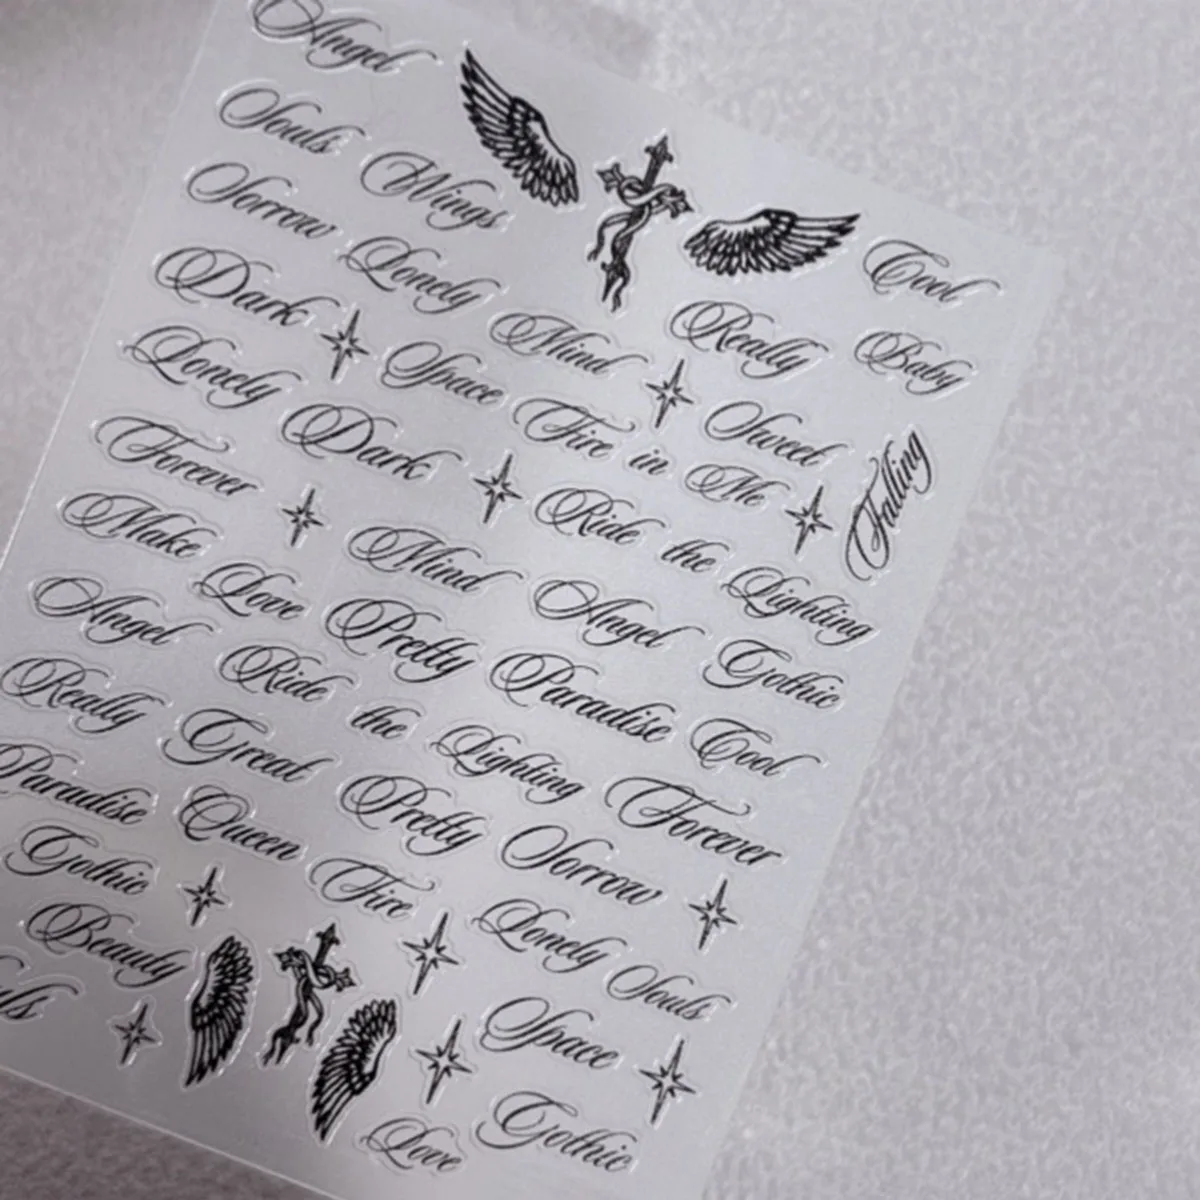 Angel
Souls
Wings
Sorrow
Lonely
Cool
Dark
Mind
Really
Baby
Lonely
Space
Fire in Me
Sweet
Falling
Forever
Dark
Ride the Lighting
Make Love
Mind
Angel
Gothic
Angel
Pretty
Paradise
Cool
Really
Ride the Lighting
Forever
Paradise
Great
Pretty
Sorrow
Gothic
Queen
Fire
Lonely Souls
Beauty
Space
Love
Gothic